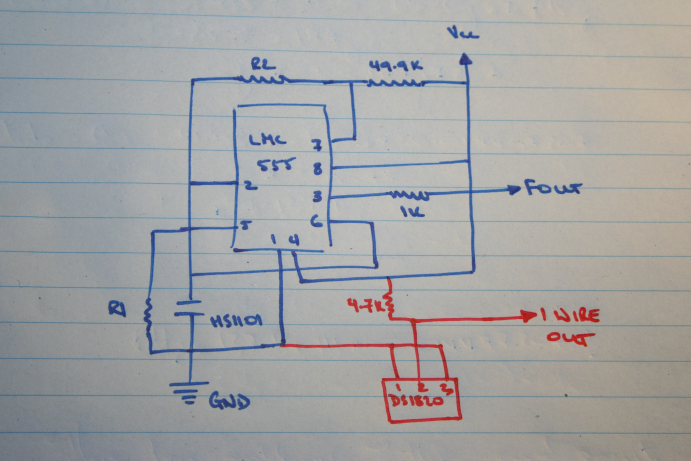 Vcc
R2
49.9K
LMC
555
7
8
2
3
FOUT
1K
5
6
1 4
4.7K
1 WIRE
OUT
R1
HS1101
1 2 3
DS1820
GND